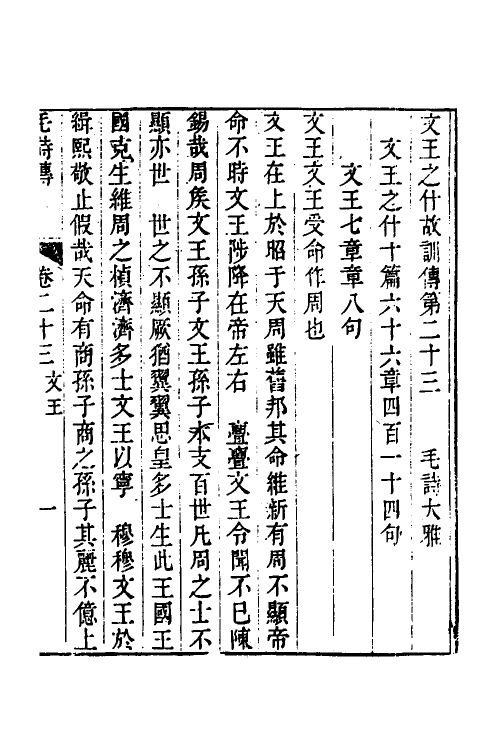 文王之什故訓傳第二十三　毛詩大雅
文王之什十篇六十六章四百一十四句
文王七章章八句
文王文王受命作周也
文王在上於昭于天周雖舊邦其命維新有周不顯帝
命不時文王陟降在帝左右　亹亹文王令聞不已陳
錫哉周矦文王孫子文王孫子本支百世凡周之士不
顯亦世　世之不顯厥猶翼翼思皇多士生此王國王
國克生維周之楨濟濟多士文王以寧　穆穆文王於
緝熙敬止假哉天命有商孫子商之孫子其麗不億上
毛詩傳　卷二十三　文王　一